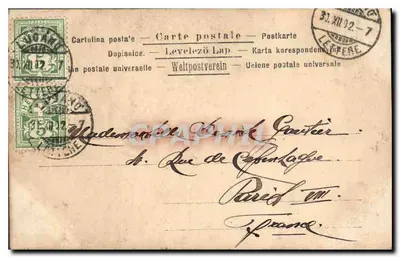 Cartolina posta'e — Carte postale — Postkarte
Dopisnice. — Levelező Lap. — Karta korespondenc
on postale universelle Weltpostverein Unione postale universale
LUGANO
LETTERE
5
5
LETTERE
30.XII.02.-7
LETTERE
Mademoiselle Carole Gautier
4. Rue de Copenhague
Paris VIII
France